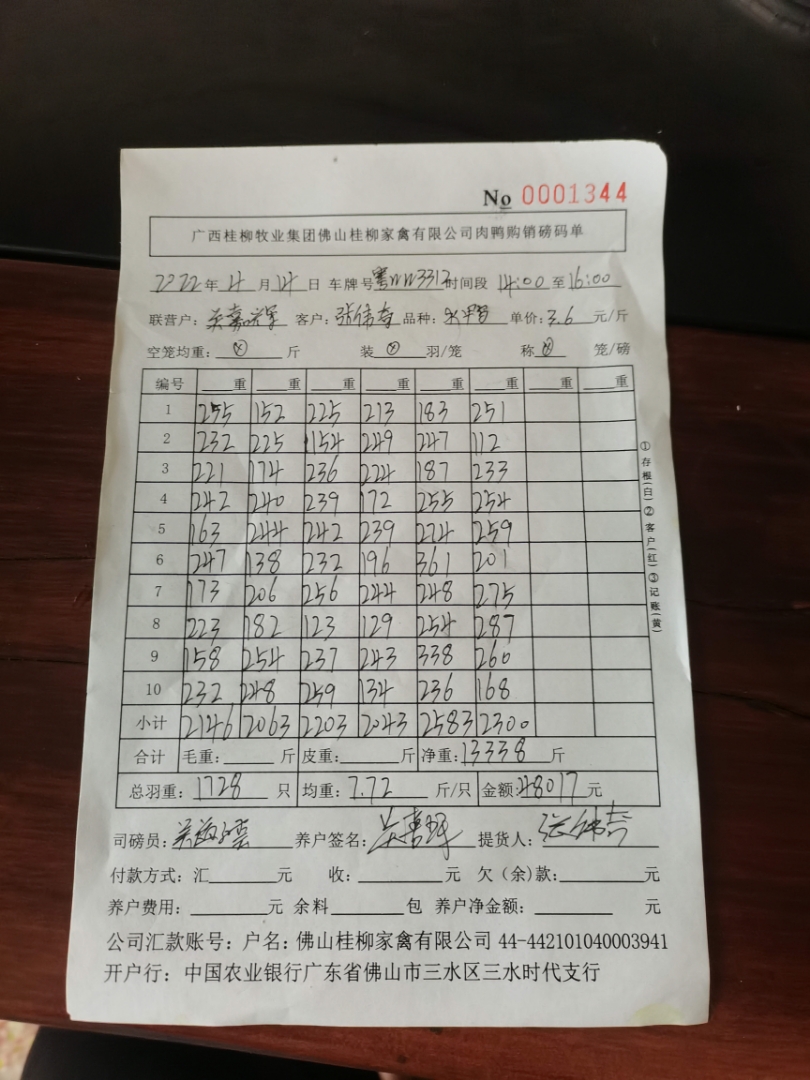 No 0001344
广西桂柳牧业集团佛山桂柳家禽有限公司肉鸭购销磅码单
2022年4月14日 车牌号 3312 时间段 14:00 至 16:00
联营户: 客户: 张伟奇 品种: 水鸭 单价: 3.6 元/斤
空笼均重: ⊗ 斤 装 ⊗ 羽/笼 称 ⊗ 笼/磅
编号 重 重 重 重 重 重 重 重
1 255 152 225 213 183 251
2 232 225 154 249 247 112
3 221 174 236 224 187 233
4 242 240 239 172 255 254
5 163 244 242 239 274 259
6 247 138 232 196 361 201
7 173 206 256 244 248 275
8 223 182 123 129 254 287
9 158 254 237 243 338 260
10 232 248 259 134 236 168
小计 2146 2063 2203 2043 2583 2300
合计 毛重: 斤 皮重: 斤 净重: 13338 斤
总羽重: 1728 只 均重: 7.72 斤/只 金额: 48017 元
司磅员: 养户签名: 提货人: 张伟奇
付款方式: 汇 元 收: 元 欠(余)款: 元
养户费用: 元 余料 包 养户净金额: 元
公司汇款账号: 户名: 佛山桂柳家禽有限公司 44-442101040003941
开户行: 中国农业银行广东省佛山市三水区三水时代支行
①存根(白)②客户(红)③记账(黄)